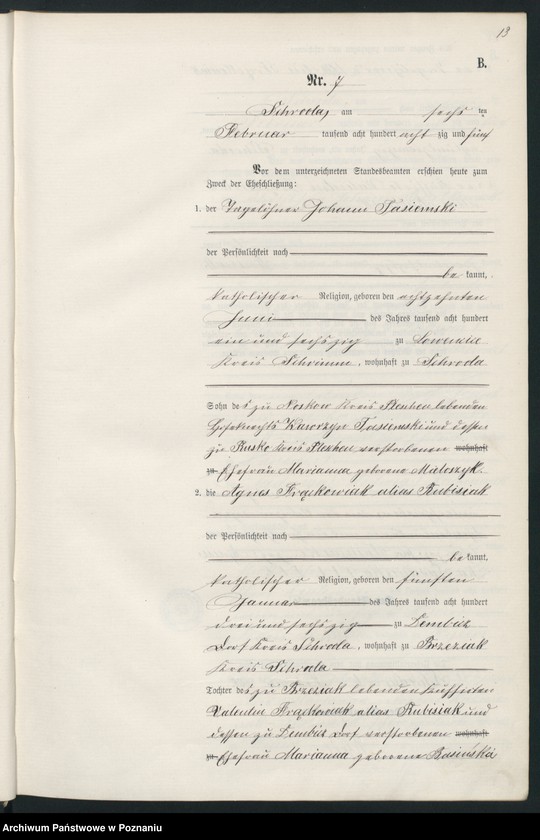 13
B.
Nr. 7
Schroda, am sechs ten
Februar tausend acht hundert acht zig und fünf
Vor dem unterzeichneten Standesbeamten erschien heute zum
Zweck der Eheschließung:
1. der Tagelöhner Johann Tasiemski
der Persönlichkeit nach
be kannt,
katholischer Religion, geboren den achtzehnten
Juni des Jahres tausend acht hundert
ein und sechszig zu
Kreis Schrimm, wohnhaft zu Schroda
Sohn des zu Noskow Kreis Pleschen lebenden
Tasiemski und dessen
zu Rusko Kreis Pleschen verstorbenen wohnhaft
zu Ehefrau Marianna geborene
2. die Agnes Frąckowiak alias Kubisiak
der Persönlichkeit nach
be kannt,
katholischer Religion, geboren den fünften
Januar des Jahres tausend acht hundert
drei und sechszig zu Dembicz
Dorf Kreis Schroda, wohnhaft zu Brzeziak
Kreis Schroda
Tochter des zu Brzeziak lebenden
Valentin Frąckowiak alias Kubisiak und
dessen zu Dembicz Dorf verstorbenen wohnhaft
zu Ehefrau Marianna geborene Basińska
Archiwum Państwowe w Poznaniu